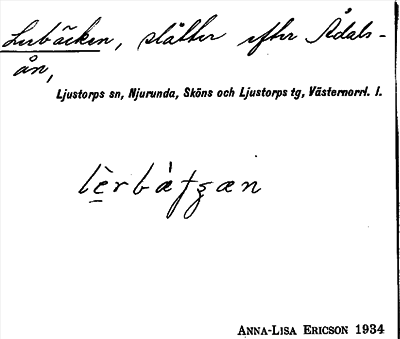 Lerbäcken, slåtter efter Ådals-
ån,
Ljustorps sn, Njurunda, Sköns och Ljustorps tg, Västernorrl. l.
lèrbàʄʂæn
ANNA-LISA ERICSON 1934